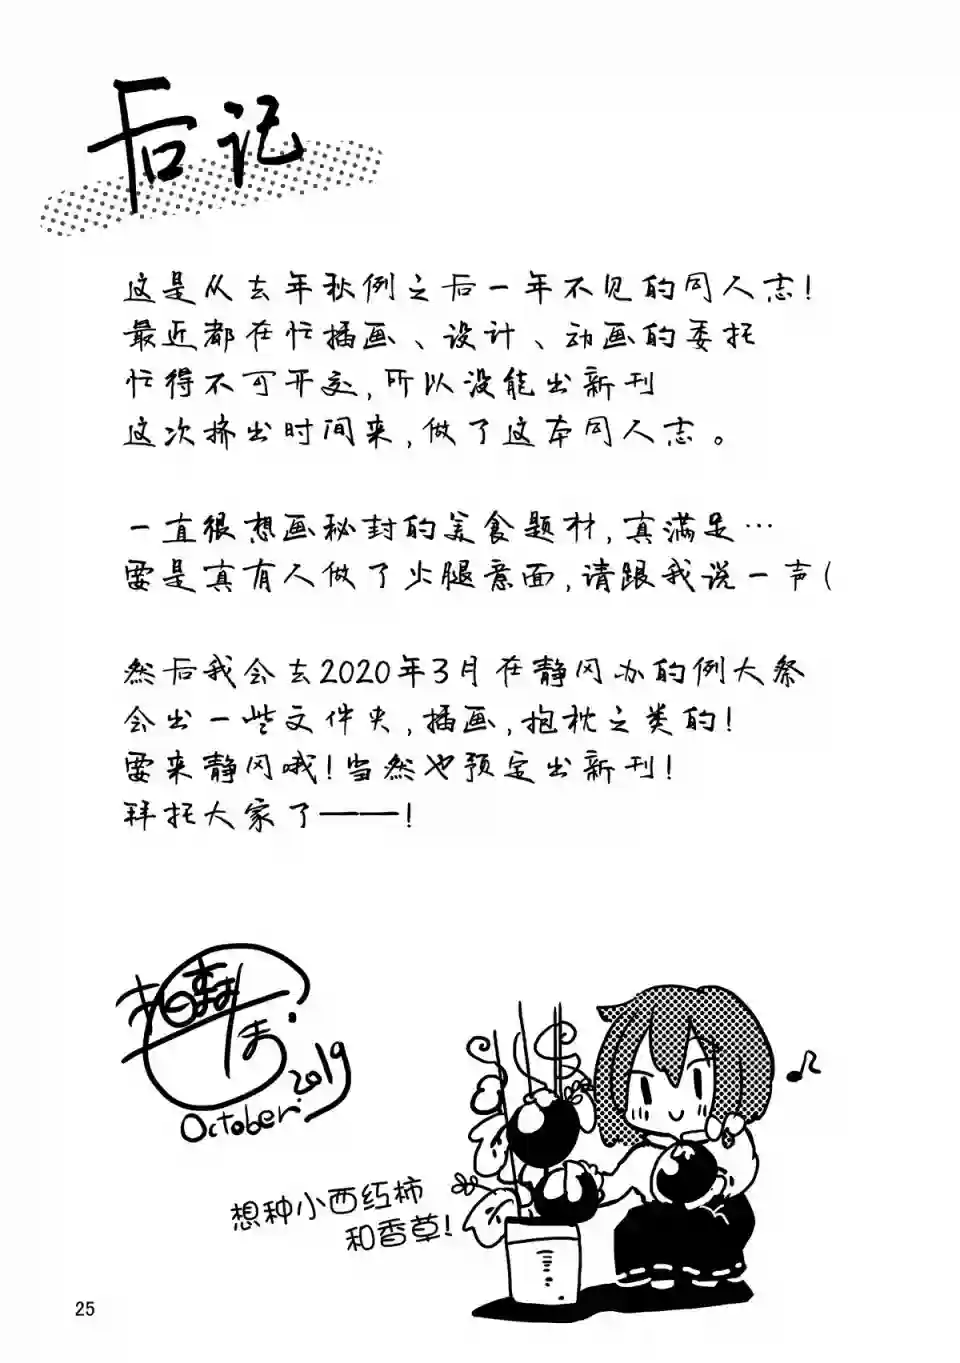 后记
这是从去年秋例之后一年不见的同人志!
最近都在忙插画、设计、动画的委托
忙得不可开交,所以没能出新刊
这次挤出时间来,做了这本同人志。
一直很想画秘封的美食题材,真满足…
要是真有人做了火腿意面,请跟我说一声(
然后我会去2020年3月在静冈办的例大祭
会出一些文件夹,插画,抱枕之类的!
要来静冈哦!当然也预定出新刊!
拜托大家了——!
2019
October.
想种小西红柿
和香草!
25